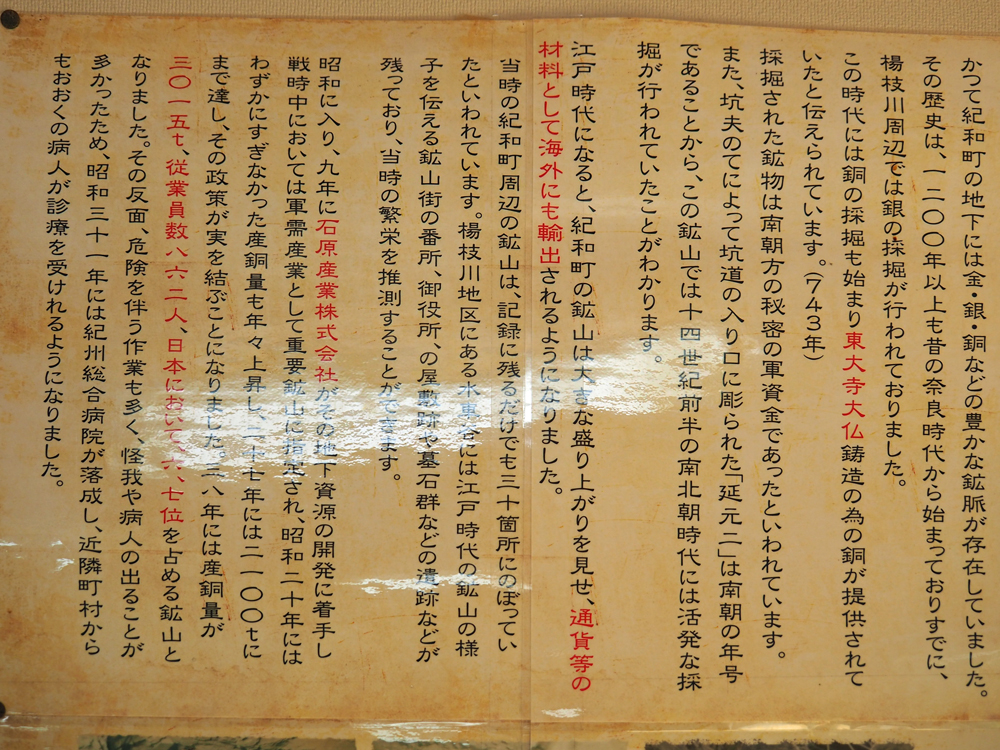 かつて紀和町の地下には金・銀・銅などの豊かな鉱脈が存在していました。
その歴史は、一二〇〇年以上も昔の奈良時代から始まっておりすでに、
楊枝川周辺では銀の採掘が行われておりました。
この時代には銅の採掘も始まり東大寺大仏鋳造の為の銅が提供されて
いたと伝えられています。(743年)
採掘された鉱物は南朝方の秘密の軍資金であったといわれています。
また、坑夫のてによって坑道の入り口に彫られた「延元二」は南朝の年号
であることから、この鉱山では十四世紀前半の南北朝時代には活発な採
掘が行われていたことがわかります。
江戸時代になると、紀和町の鉱山は大きな盛り上がりを見せ、通貨等の
材料として海外にも輸出されるようになりました。
当時の紀和町周辺の鉱山は、記録に残るだけでも三十箇所にのぼってい
たといわれています。楊枝川地区にある水車谷には江戸時代の鉱山の様
子を伝える鉱山街の番所、御役所、の屋敷跡や墓石群などの遺跡などが
残っており、当時の繁栄を推測することができます。
昭和に入り、九年に石原産業株式会社がその地下資源の開発に着手し
戦時中においては軍需産業として重要鉱山に指定され、昭和二十年には
わずかにすぎなかった産銅量も年々上昇し、二十七年には二一〇〇tに
まで達し、その政策が実を結ぶことになりました。三八年には産銅量が
三〇一五t、従業員数八六二人、日本において六、七位を占める鉱山と
なりました。その反面、危険を伴う作業も多く、怪我や病人の出ることが
多かったため、昭和三十一年には紀州総合病院が落成し、近隣町村から
もおおくの病人が診療を受けれるようになりました。